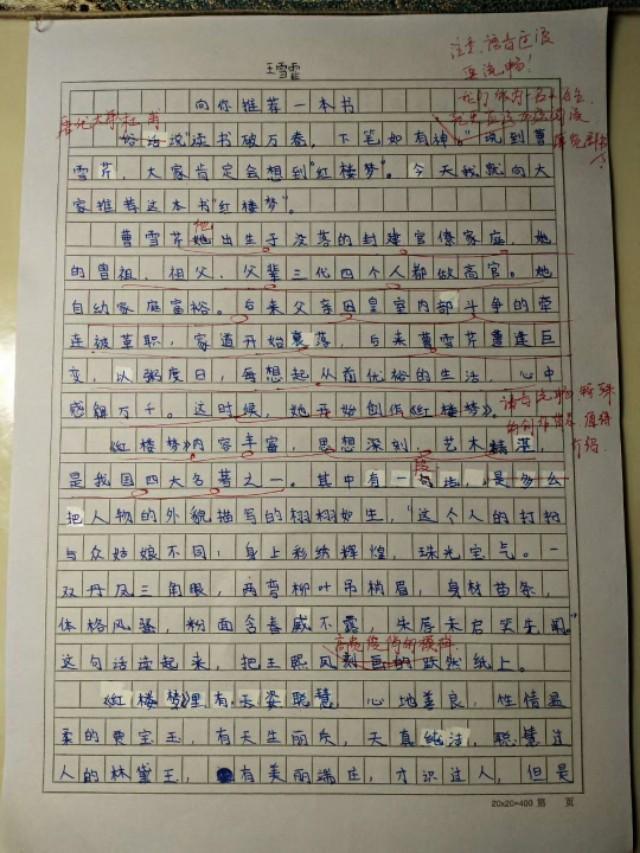 注意语句过渡
要流畅！
王雪霏
向你推荐一本书
唐代大学杜甫
俗话说"读书破万卷，下笔如有神。"说到曹
雪芹，大家肯定会想到"红楼梦"。今天我就向大
家推荐这本书"红楼梦"。
他
曹雪芹她出生于没落的封建官僚家庭，她
的曾祖，祖父，父辈三代四个人都做高官。她
自幼家庭富裕。后来父亲因皇室内部斗争的牵
连被革职，家道开始衰落，后来曹雪芹遭逢巨
变，以粥度日，每想起从前优裕的生活，心中
感慨万千。这时候，她开始创作《红楼梦》。
语言流畅
的创作背景值得
介绍
《红楼梦》内容丰富，思想深刻，艺术精湛，
段
是我国四大名著之一。其中有一句话，是多么
把人物的外貌描写的栩栩如生，"这个人的打扮
与众姑娘不同：身上彩绣辉煌，珠光宝气。一
双丹凤三角眼，两弯柳叶吊梢眉，身材苗条，
体格风骚，粉面含春威不露，朱唇未启笑先闻。"
这句话读起来，把王熙凤刻画的跃然纸上。
《红楼梦》里有天姿聪慧，心地善良，性情温
柔的贾宝玉，有天生丽质，天真纯洁，聪慧过
人的林黛玉，有美丽端庄，才识过人，但是
20×20=400 第 页